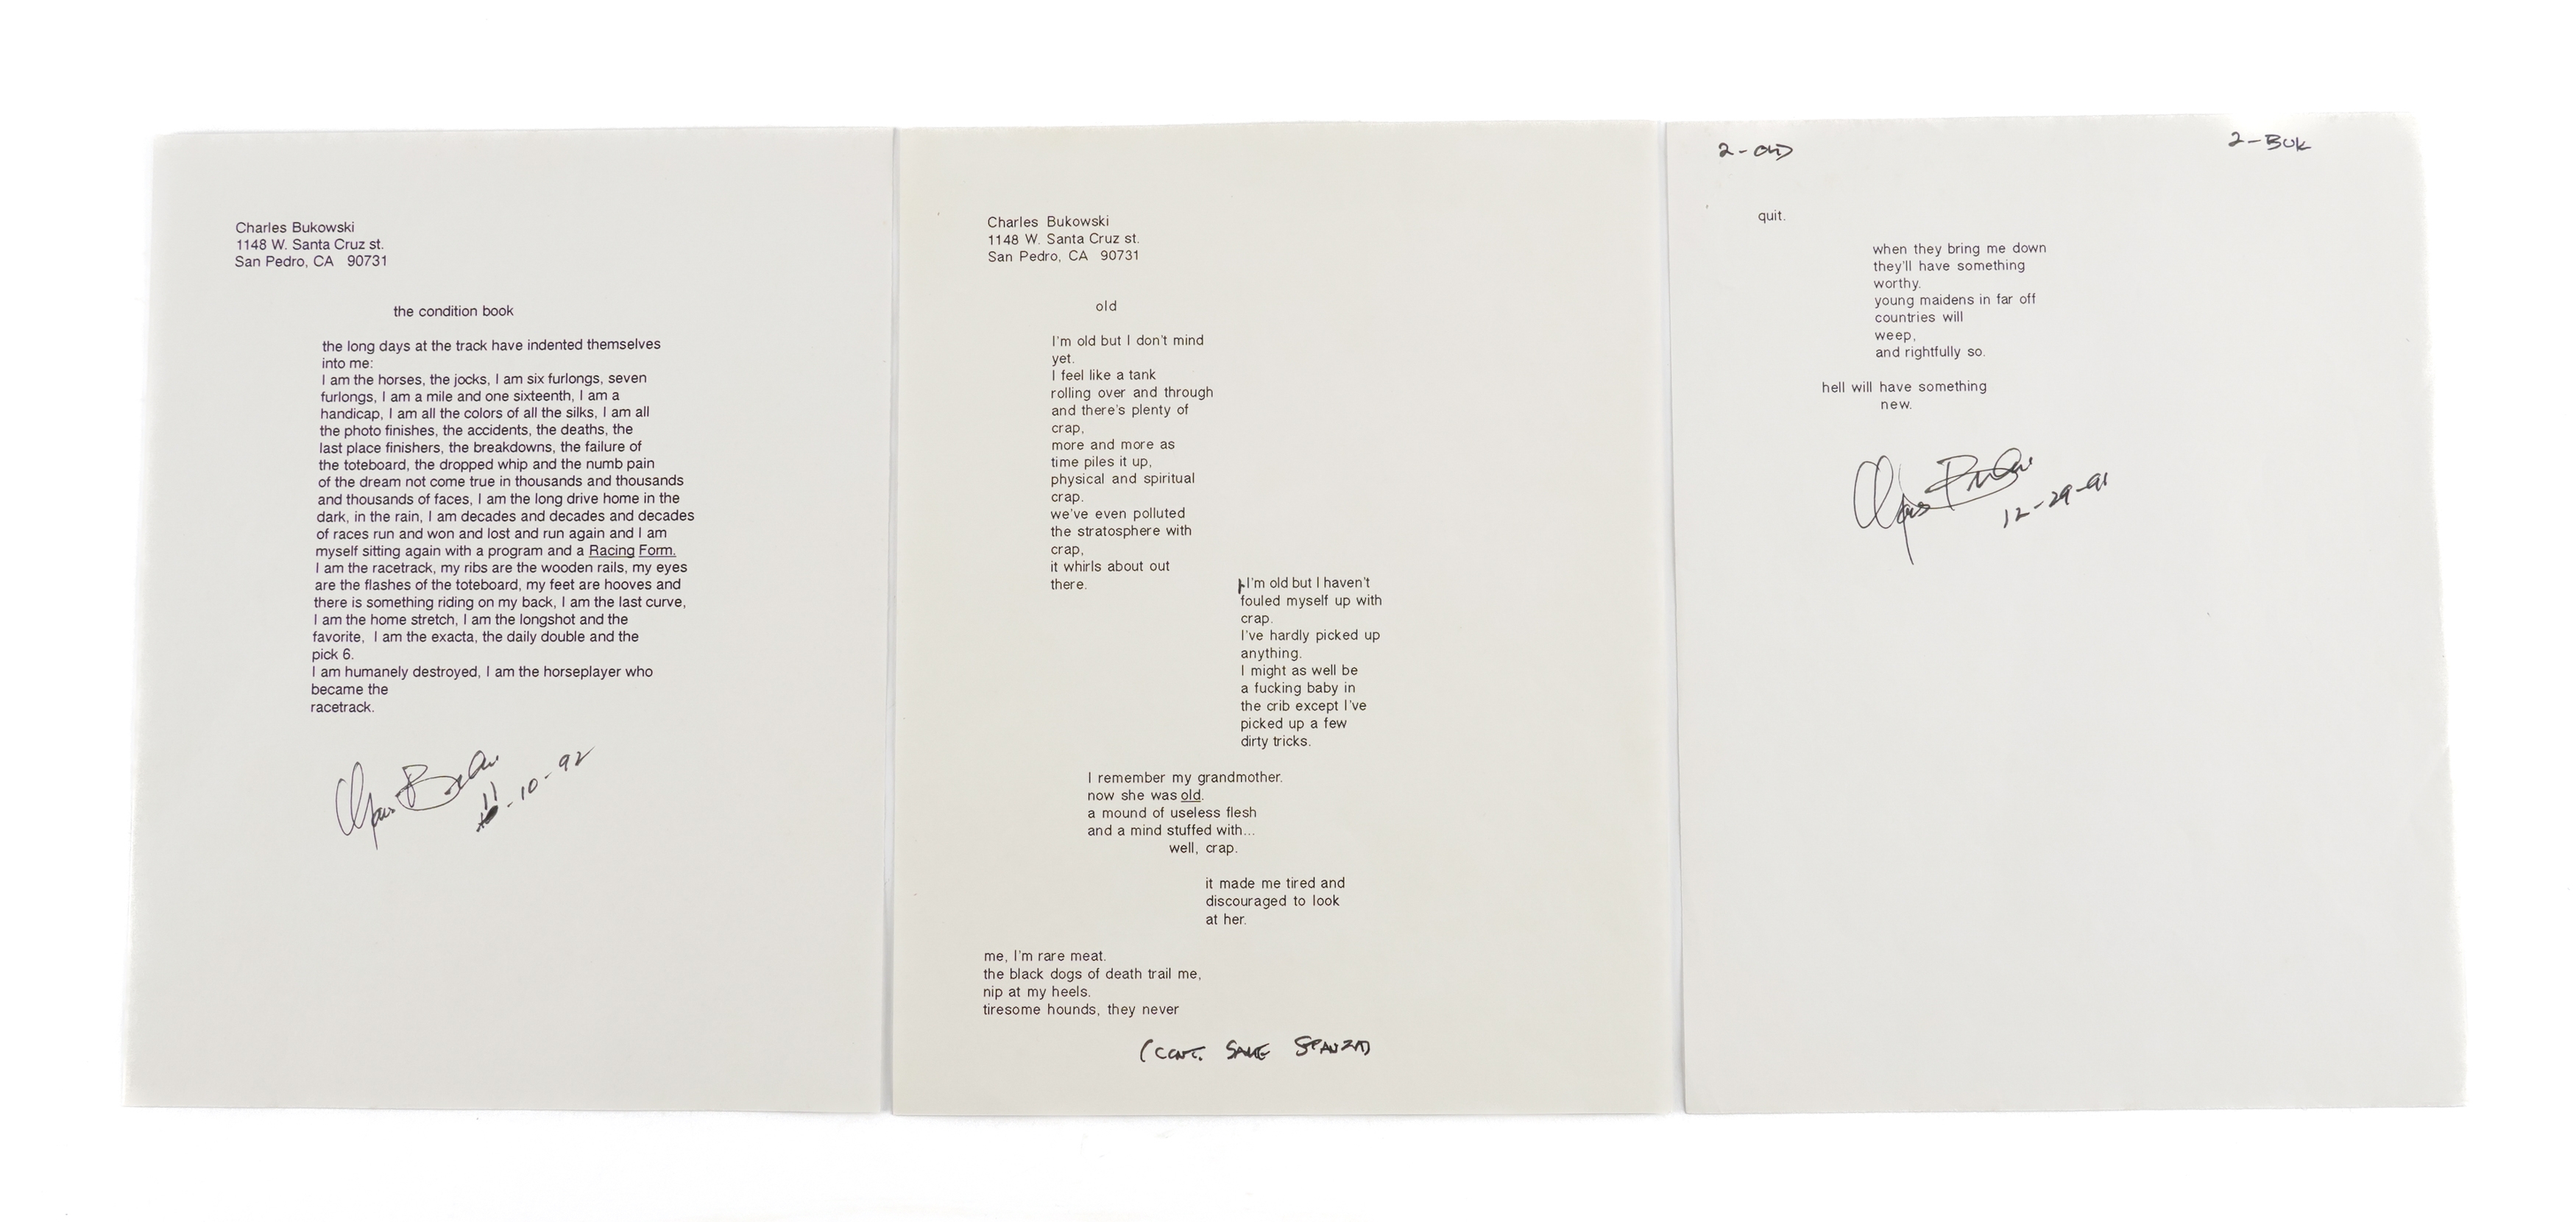 Charles Bukowski
1148 W. Santa Cruz st.
San Pedro, CA 90731
the condition book
the long days at the track have indented themselves
into me:
I am the horses, the jocks, I am six furlongs, seven
furlongs, I am a mile and one sixteenth, I am a
handicap, I am all the colors of all the silks, I am all
the photo finishes, the accidents, the deaths, the
last place finishers, the breakdowns, the failure of
the toteboard, the dropped whip and the numb pain
of the dream not come true in thousands and thousands
and thousands of faces, I am the long drive home in the
dark, in the rain, I am decades and decades and decades
of races run and won and lost and run again and I am
myself sitting again with a program and a Racing Form.
I am the racetrack, my ribs are the wooden rails, my eyes
are the flashes of the toteboard, my feet are hooves and
there is something riding on my back, I am the last curve,
I am the home stretch, I am the longshot and the
favorite, I am the exacta, the daily double and the
pick 6.
I am humanely destroyed, I am the horseplayer who
became the
racetrack.
11-10-92
Charles Bukowski
1148 W. Santa Cruz st.
San Pedro, CA 90731
old
I'm old but I don't mind
yet.
I feel like a tank
rolling over and through
and there's plenty of
crap,
more and more as
time piles it up,
physical and spiritual
crap.
we've even polluted
the stratosphere with
crap,
it whirls about out
there.
I'm old but I haven't
fouled myself up with
crap.
I've hardly picked up
anything.
I might as well be
a fucking baby in
the crib except I've
picked up a few
dirty tricks.
I remember my grandmother.
now she was old.
a mound of useless flesh
and a mind stuffed with...
well, crap.
it made me tired and
discouraged to look
at her.
me, I'm rare meat.
the black dogs of death trail me,
nip at my heels.
tiresome hounds, they never
(CONT. SAME STANZA)
2-OLD
2-BUK
quit.
when they bring me down
they'll have something
worthy.
young maidens in far off
countries will
weep,
and rightfully so.
hell will have something
new.
12-29-91